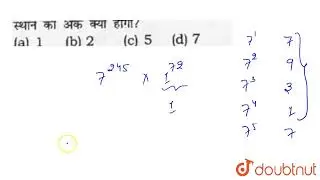 स्थान का अंक क्या होगा?
(a) 1 (b) 2 (c) 5 (d) 7
7^245 × 1^72
1
7^1 7
7^2 9
7^3 3
7^4 1
7^5 7
doubtnut